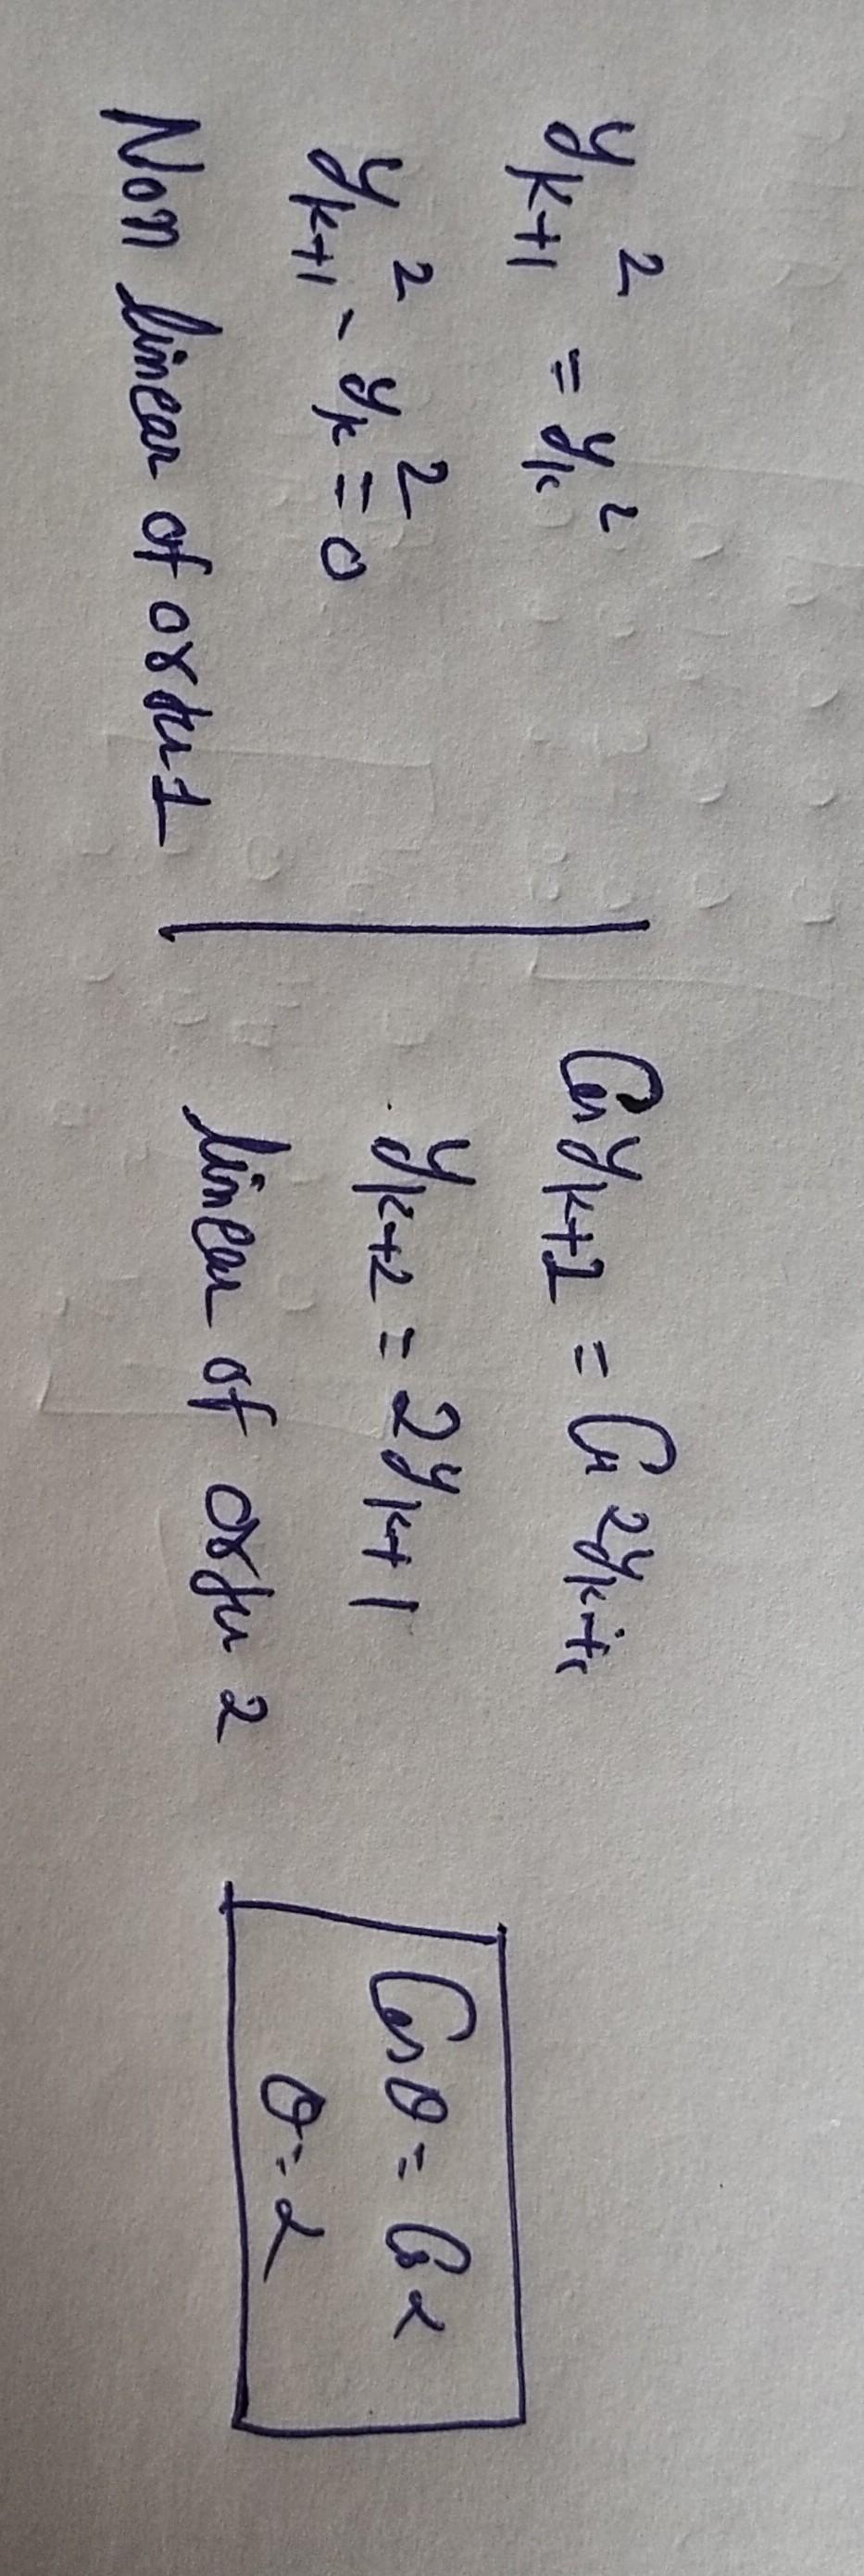 y_{k+1}^2 = y_k^2
y_{k+1}^2 - y_k^2 = 0
Non linear of order 1
Cos y_{k+2} = Cos 2y_{k+1}
y_{k+2} = 2y_{k+1}
linear of order 2
Cos θ = Cos α
θ = α